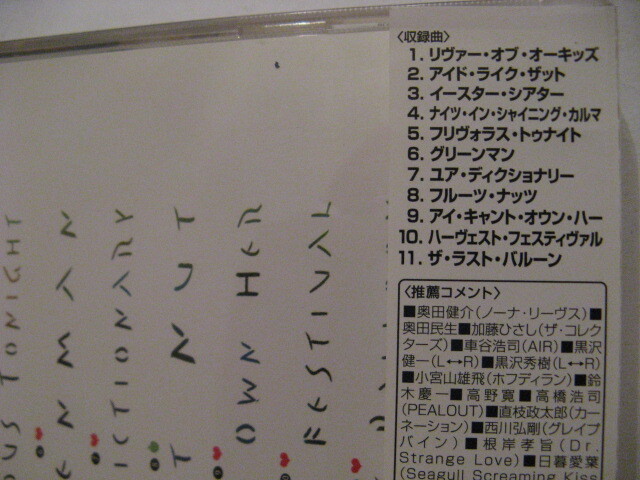 〈収録曲〉
1. リヴァー・オブ・オーキッズ
2. アイド・ライク・ザット
3. イースター・シアター
4. ナイツ・イン・シャイニング・カルマ
5. フリヴォラス・トゥナイト
6. グリーンマン
7. ユア・ディクショナリー
8. フルーツ・ナッツ
9. アイ・キャント・オウン・ハー
10. ハーヴェスト・フェスティヴァル
11. ザ・ラスト・バルーン
〈推薦コメント〉
■奥田健介(ノーナ・リーヴス)■
奥田民生■加藤ひさし(ザ・コレク
ターズ)■車谷浩司(AIR)■黒沢
健一(L↔R)■黒沢秀樹(L↔R)
■小宮山雄飛(ホフディラン)■鈴
木慶一■高野寛■高橋浩司
(PEALOUT)■直枝政太郎(カー
ネーション)■西川弘剛(グレイプ
バイン)■根岸孝旨(Dr.
Strange Love)■日暮愛葉
(Seagull Screaming Kiss
OUS TONIGHT
EN MAN
ICTIONARY
T NUT
OWN HER
FESTIVAL